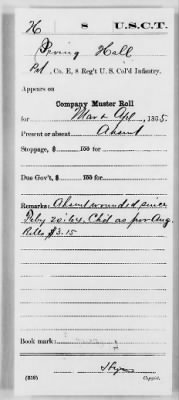 H | 8 | U.S.C.T.
Irving Hall
Pvt, Co. E, 8 Reg't U. S. Col'd Infantry.
Appears on
Company Muster Roll
for Mar & Apl, 1865.
Present or absent Absent
Stoppage, $ 100 for
Due Gov't, $ 100 for
Remarks: Absent wounded since
Feby 20. '64. Chd as per Aug.
Rolls $3.15
Book mark:
(358) Copyist.